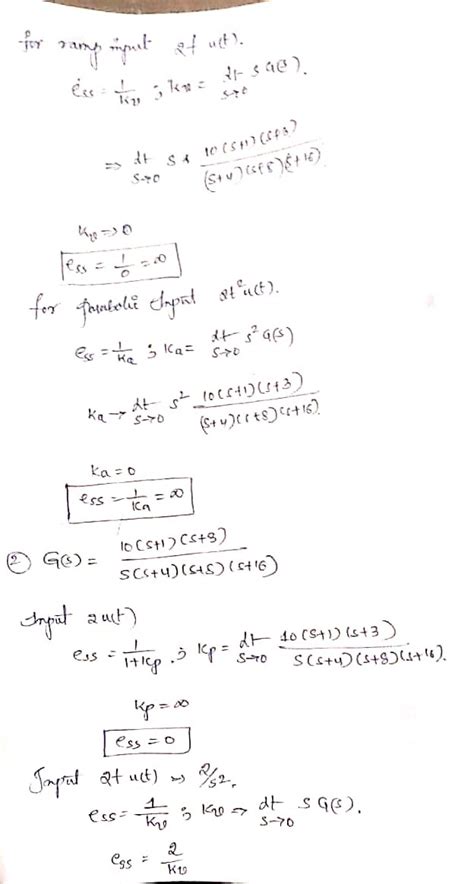 for ramp input 2t u(t).
ess = 1/Kv ; Kv = lt s→0 s G(s).
⇒ lt s→0 s × 10(s+1)(s+3) / (s+4)(s+8)(s+16)
Kv ⇒ 0
ess = 1/0 = ∞
for parabolic Input 2t² u(t).
ess = 1/Ka ; Ka = lt s→0 s² G(s)
Ka → lt s→0 s² 10(s+1)(s+3) / (s+4)(s+8)(s+16)
Ka = 0
ess = 1/Ka = ∞
② G(s) = 10(s+1)(s+3) / s(s+4)(s+8)(s+16)
Input 2u(t)
ess = 1/1+Kp ; Kp = lt s→0 10(s+1)(s+3) / s(s+4)(s+8)(s+16).
Kp = ∞
ess = 0
Input 2t u(t) → 2/s2.
ess = 1/Kv ; Kv → lt s→0 s G(s).
ess = 2/Kv